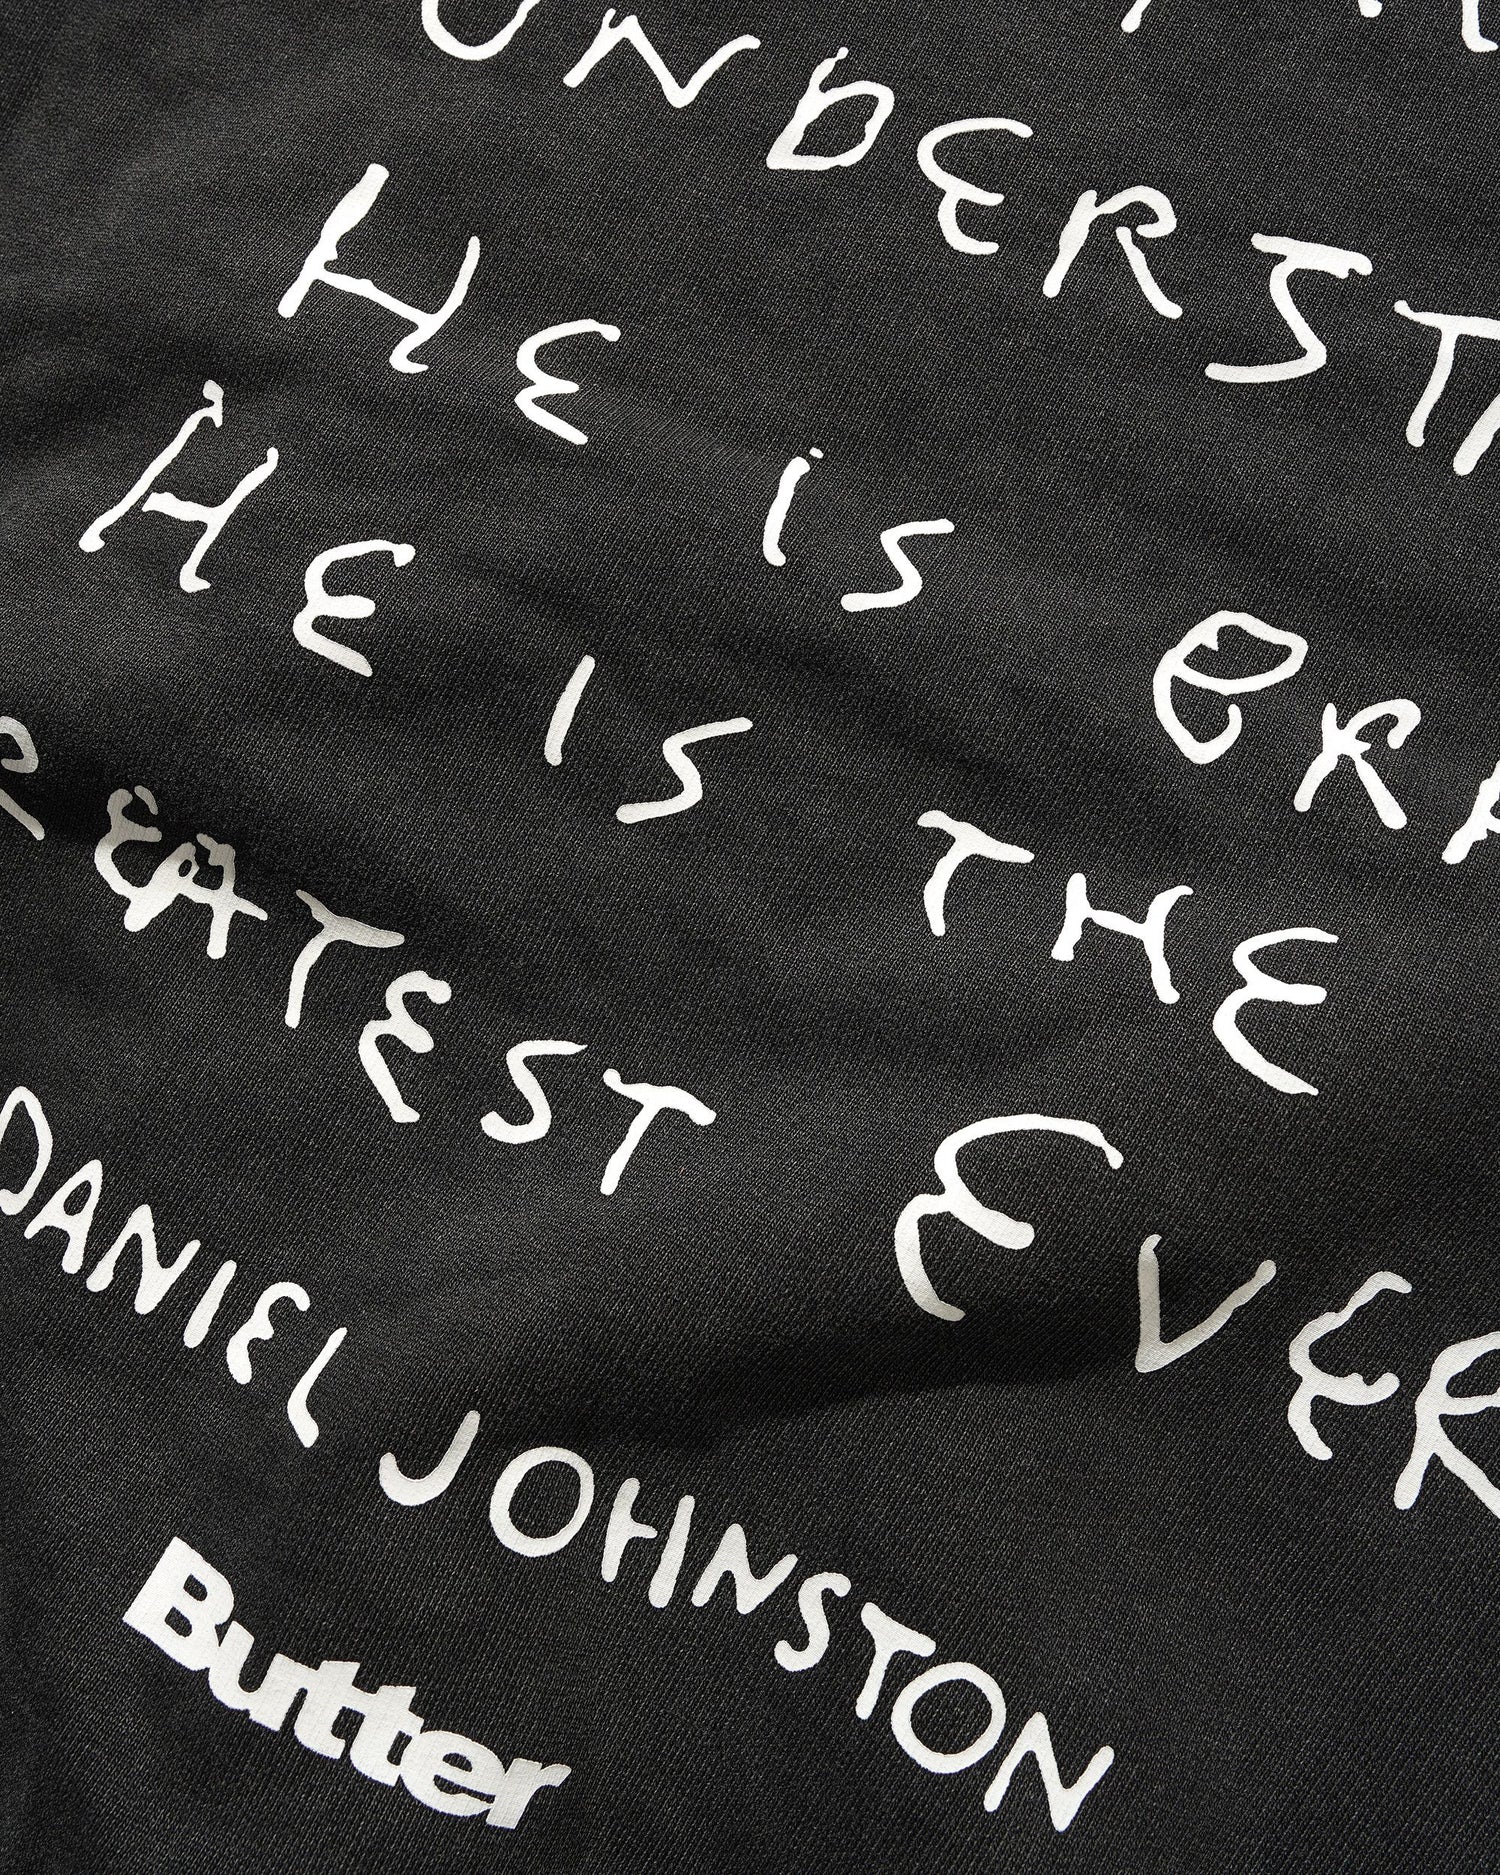 UNDERST
HE is CRA
HE IS THE
REATEST EVER
DANIEL JOHNSTON
Butter